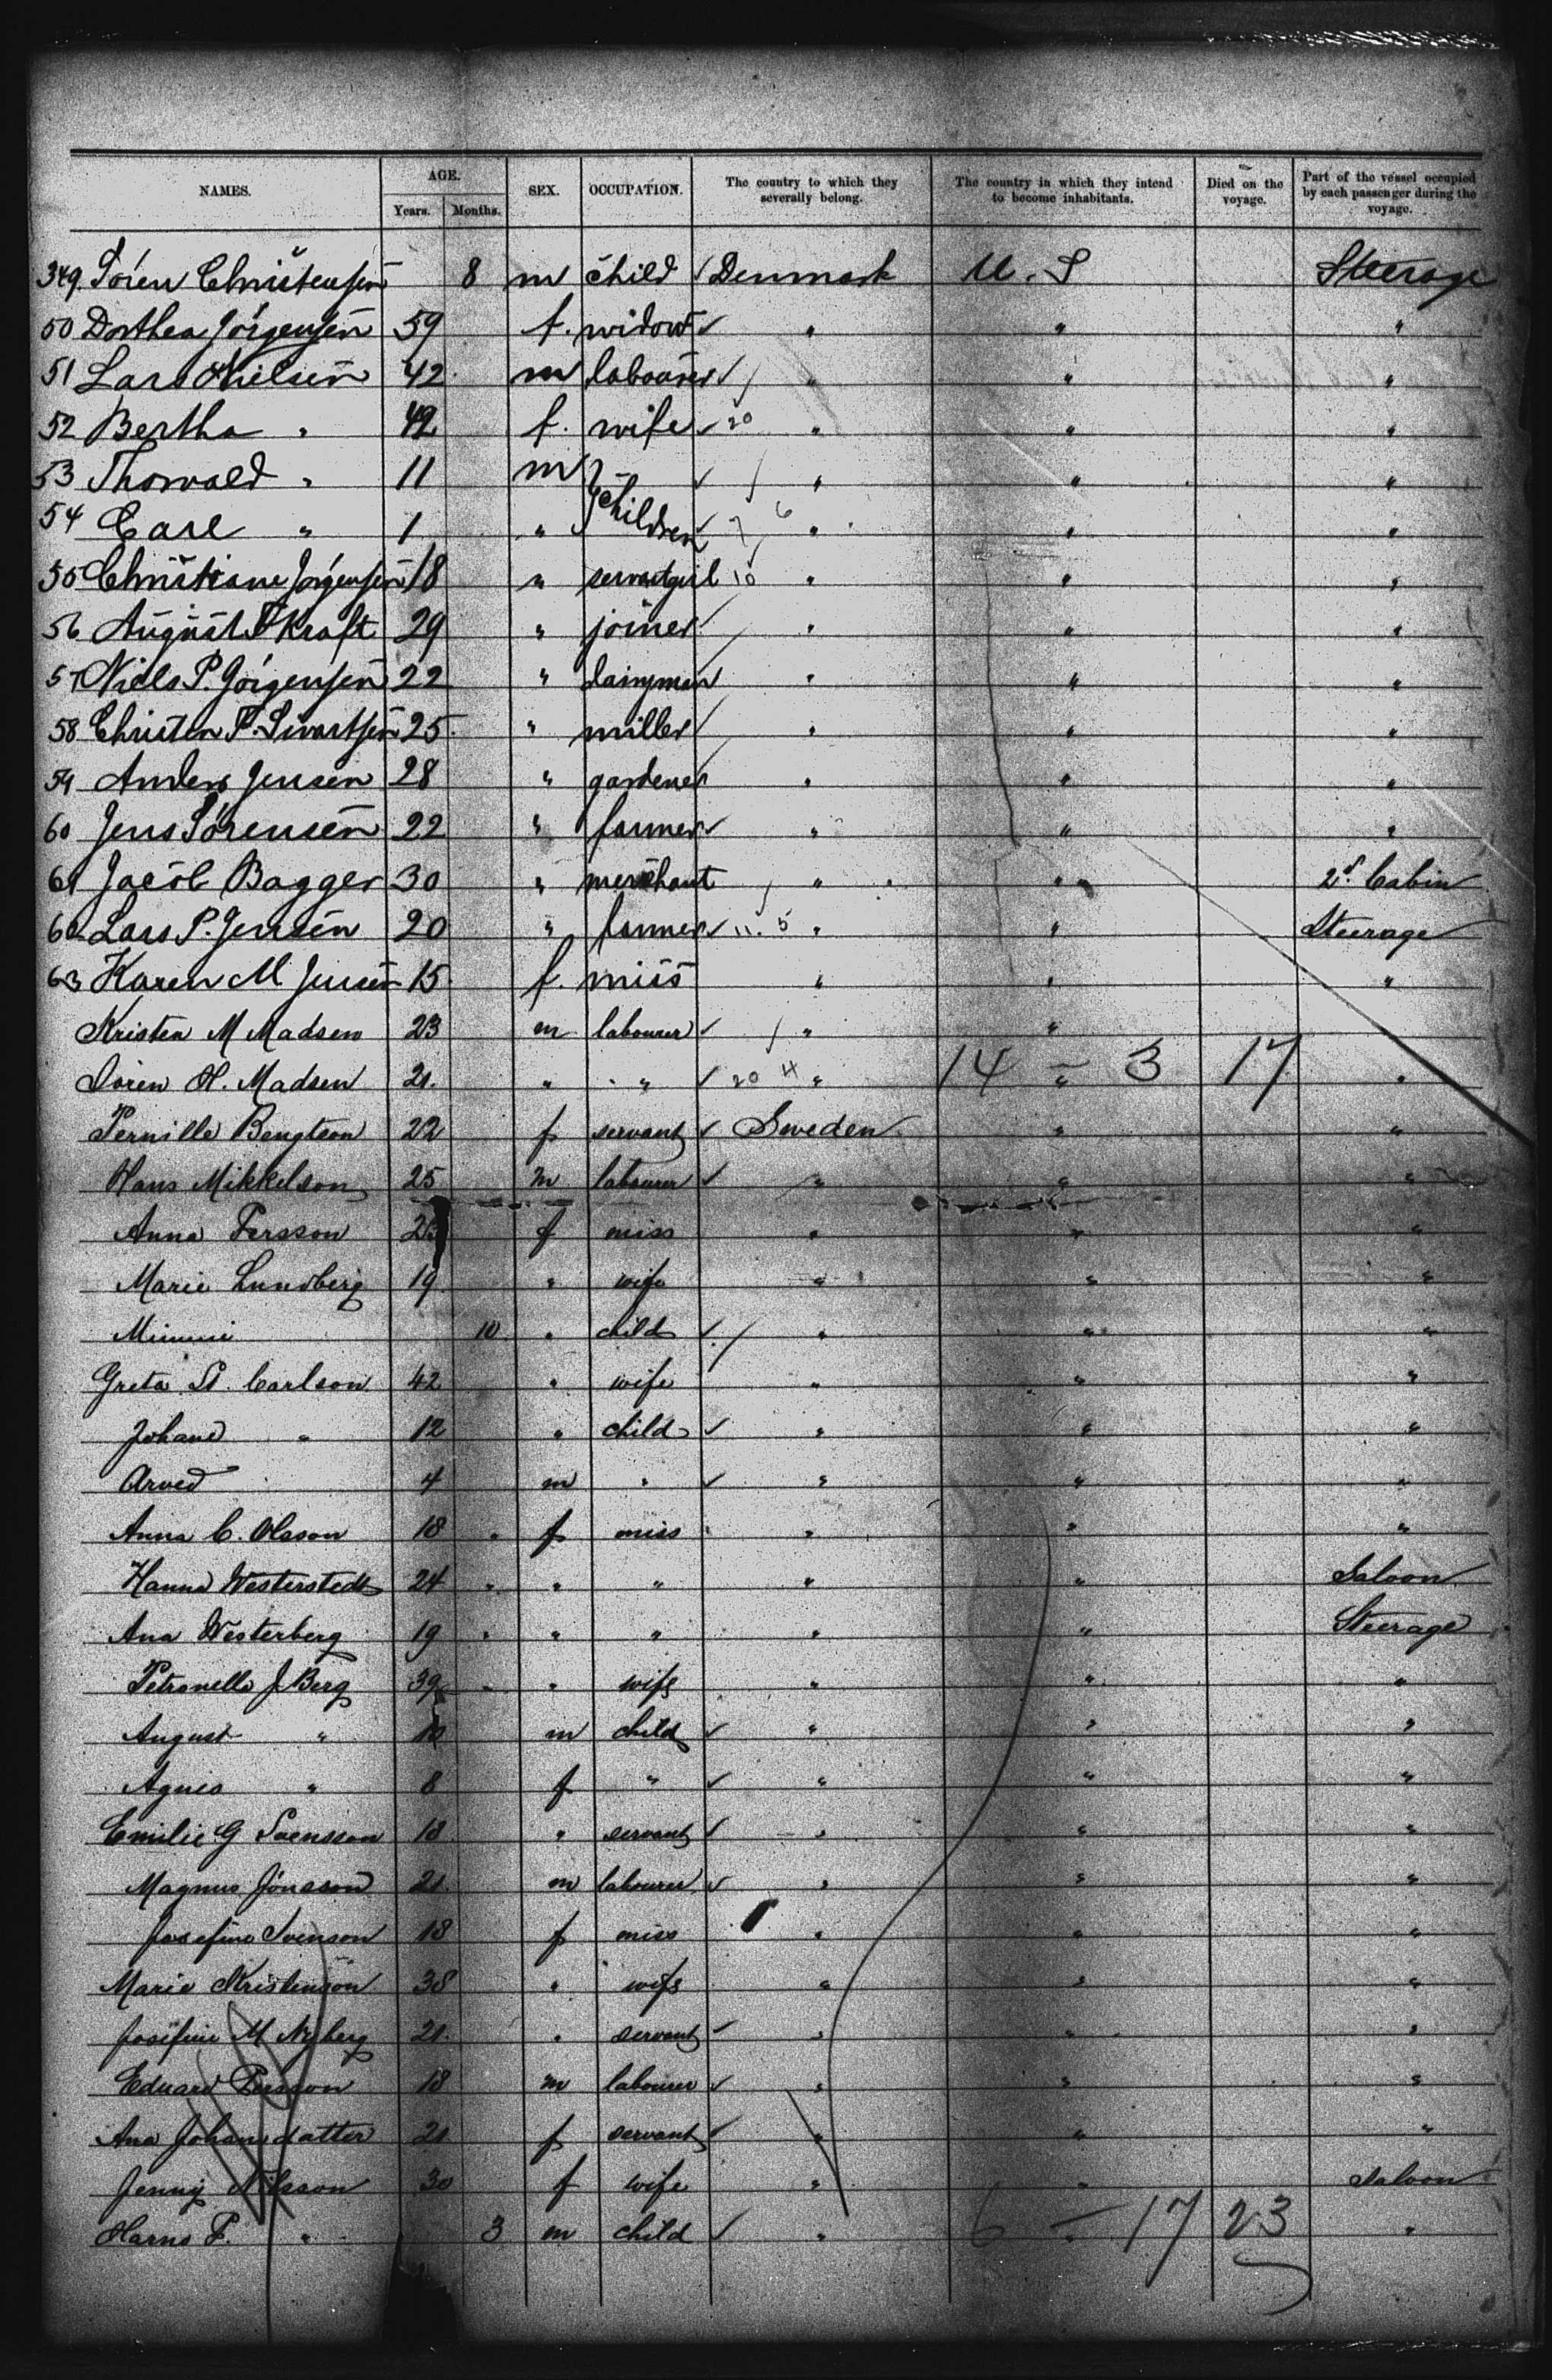 NAMES. AGE. Years. Months. SEX. OCCUPATION. The country to which they severally belong. The country in which they intend to become inhabitants. Died on the voyage. Part of the vessel occupied by each passenger during the voyage.
349 Sören Christensen 8 m child ✓ Denmark U. S Steerage
50 Dorthea Jörgensen 59 f. widow ✓ " " "
51 Lars Nielsen 42 m labourer ✓ / " " "
52 Bertha " 42 f. wife ✓ 20 " " "
53 Thorvald " 11 m } ✓ / " " "
54 Carl " 1 " children ✓ 7 6 " " "
55 Christiane Jörgensen 18 " servantgirl 10 " " "
56 August Kraft 29 " joiner / " " "
57 Niels P. Jörgensen 22 " dairyman " " "
58 Christen P. Sivartsen 25 " miller " " "
59 Anders Jensen 28 " gardener " " "
60 Jens Sörensen 22 " farmer ✓ " " "
61 Jacob Bagger 30 " merchant / " " 2d. Cabin
62 Lars P. Jensen 20 " farmer ✓ 11. 5 " " Steerage
63 Karen M Jensen 15 f. miss " " "
Kristen M Madsen 23 m labourer ✓ / " "
Soren H. Madsen 21. " " ✓ 20 4 " 14 - " 3 17 "
Pernille Bengtson 22 f servant ✓ Sweden " "
Hans Mikkelson 25 m labourer ✓ " " "
Anna Persson f miss " " "
Marie Lundberg 19 " wife " " "
Minnie 10 " child ✓ / " " "
Greta St. Carlson 42 " wife " " "
Johand " 12 " child ✓ " " "
Arved 4 m " ✓ " " "
Anna C. Olsson 18 f miss " " "
Hanna Westerstedt 24 " " " " Saloon
Ana Westerberg 19 " " " " Steerage
Petronella J Berg 39 " wife " " "
August " 10 m child ✓ " " "
Agnes " 8 f " ✓ " " "
Emilie G Svensson 18 " servant ✓ " " "
Magnus Jönsson 21. m labourer ✓ " " "
Josefine Svenson 18 f miss " " "
Marie Kristenson 38 " wife " " "
Josefine M Nyberg 21. " servant ✓ " " "
Eduard Persson 18 m labourer ✓ " " "
Ana Johansdatter 21 f servant ✓ " " "
Jenny Nilsson 30 f wife " " Saloon
Harns F. " 3 m child ✓ " 6 - " 17 23 "